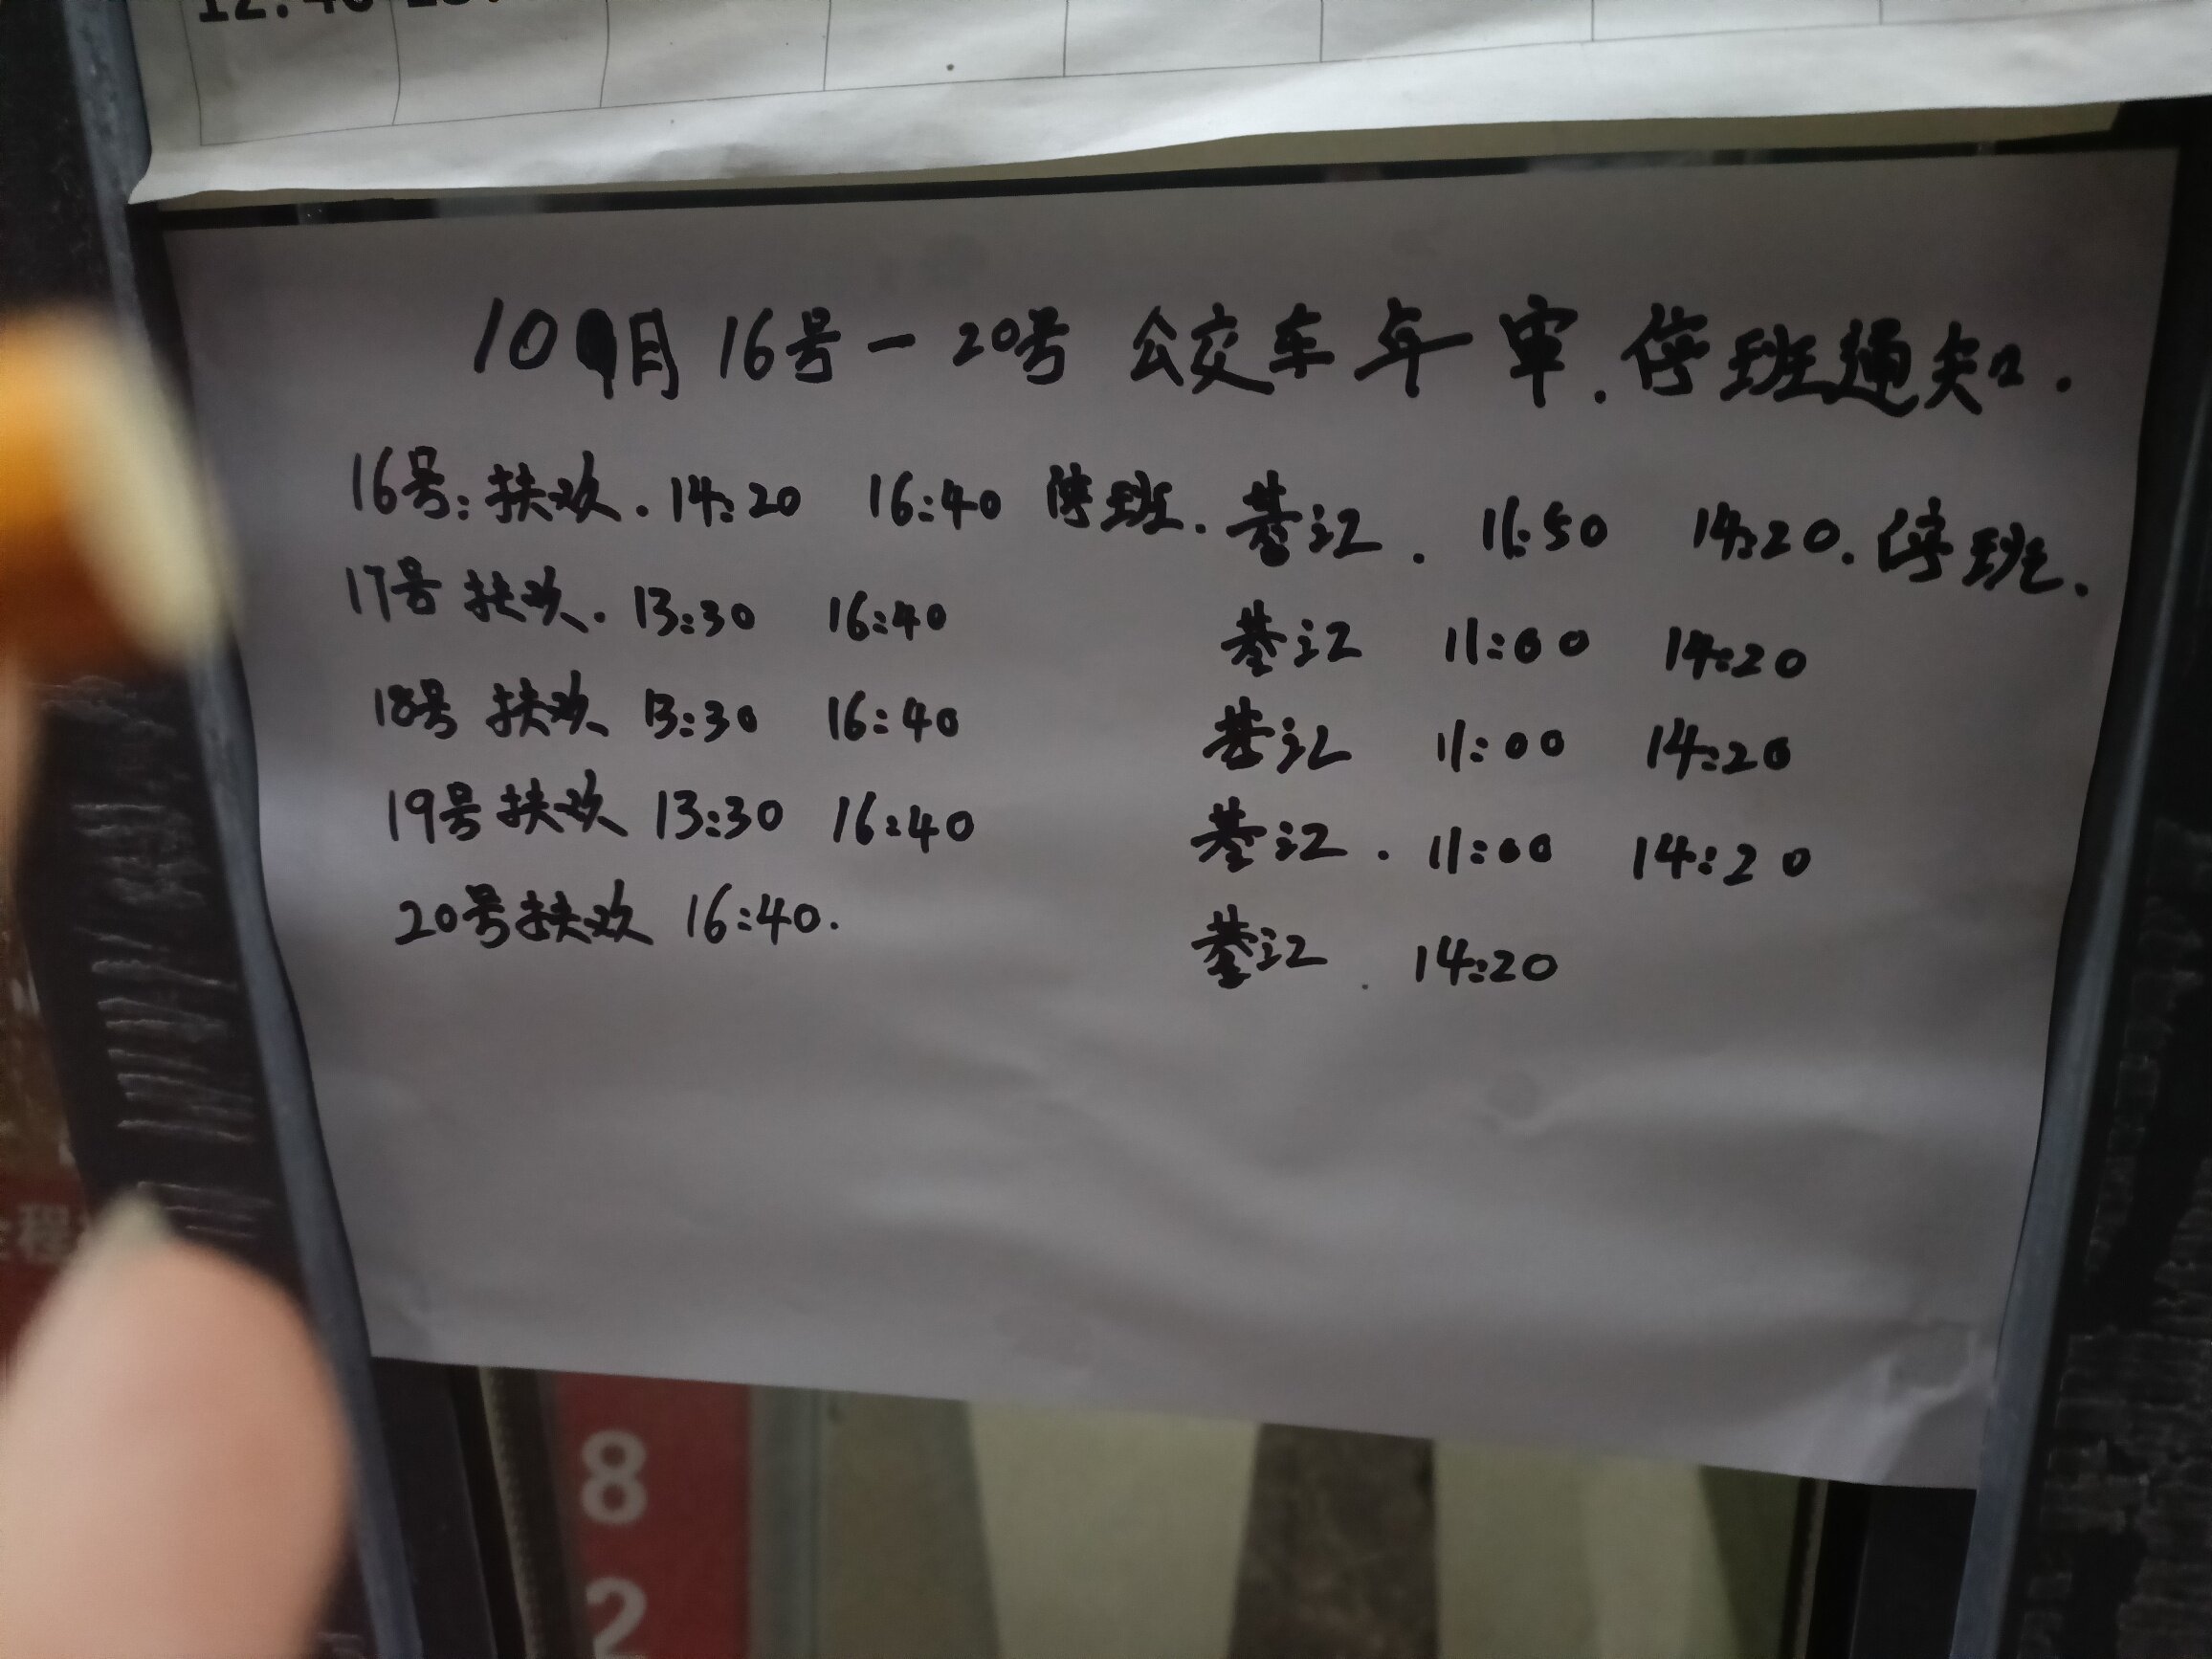 10月16号-20号 公交车年审.停班通知.
16号:扶欢.14:20 16:40 停班.綦江. 11:50 14:20.停班.
17号 扶欢.13:30 16:40 綦江 11:00 14:20
18号 扶欢 13:30 16:40 綦江 11:00 14:20
19号 扶欢 13:30 16:40 綦江.11:00 14:20
20号扶欢 16:40. 綦江.14:20
8
2